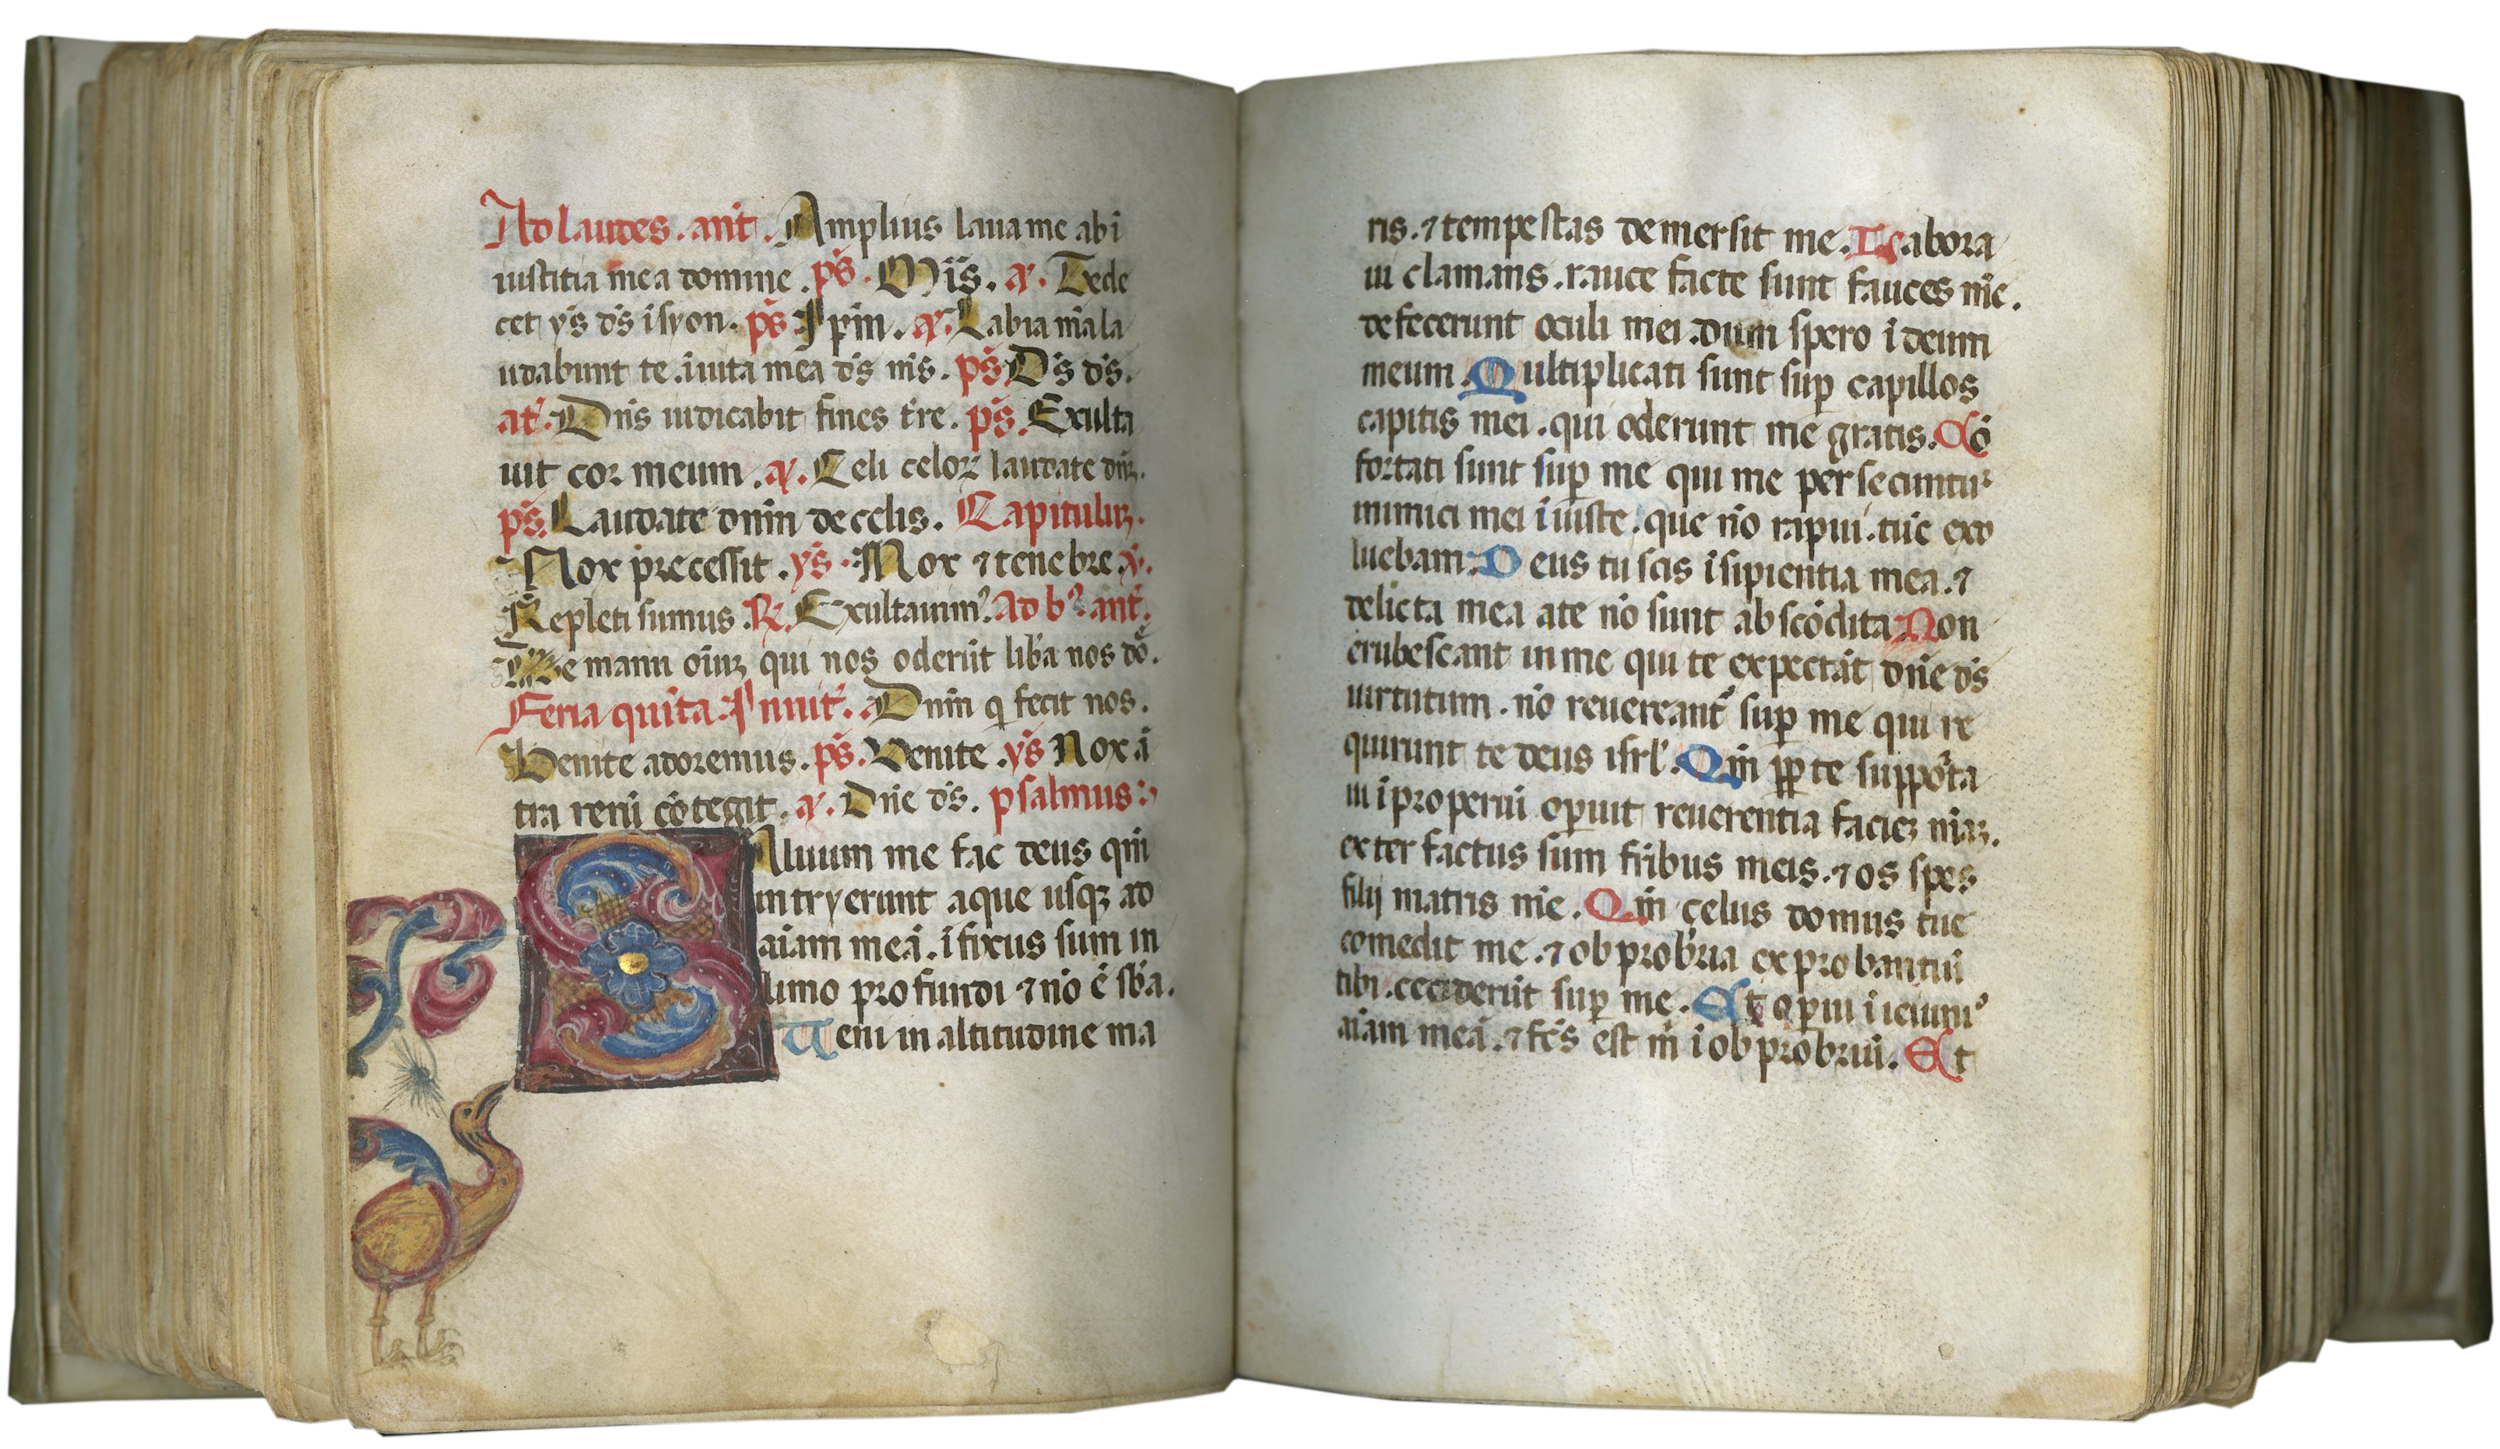 Ad laudes. ant. Amplius laua me abi
iustitia mea domine. ps. Mis. a. Te de
cet ys ds i syon. ps Ipm. a. Labia mala
udabunt te. i uita mea ds ms. ps Ds ds.
at. Dns iudicabit fines tre. ps. Exulta
uit cor meum. a. Celi celoꝝ laudate dnꝫ.
ps. Laudate dnm de celis. Capituluꝫ.
Nox precessit. ys. Nox ⁊ tenebre a.
Repleti sumus. R. Exultauim⁹. Ad b⁹. ant.
De manu oiuꝫ qui nos oderūt lib̄a nos dō.
Feria quīta. Inuit. Dnm q fecit nos.
Venite adoremus. ps. Venite. ys Nox ā
tra rerū cōtegit. a. Dn̄e ds. psalmus
SAluum me fac deus qm̄
intryerunt aque usqꝫ ad
aīam meā. ī fixus sum in
limo profundi ⁊ nō ē sb̄a.
Ueni in altitudine ma
ris. ⁊ tempestas demersit me. Labora
ui clamans. rauce facte sunt fauces mē.
defecerunt oculi mei. dum spero ī deum
meum. Multiplicati sunt sup capillos
capitis mei. qui oderunt me gratis. Cō
fortati sunt sup me qui me persecuntu᷑
inimici mei īiuste. que nō rapui. tūc exo
luebam. Deus tu scis īsipientia mea. ⁊
delicta mea a te nō sunt abscōdita Non
erubescant in me qui te expectāt dn̄e ds
uirtutum. nō reuereant᷑ sup me qui re
quirunt te deus isrl'. Qm̄ ꝓp te suppōrta
ui īproperiū opuit reuerentia facieꝫ mīaꝫ.
exter factus sum fribus meis. ⁊ os spes
filij matris mē. Qm̄ çelus domus tue
comedit me. ⁊ obprobria exprobantiū
tibi. ceciderūt sup me. Et opui ī ieiuni⁹
aīam meā. ⁊ fc̄s est m̄ ī obprobriū. Et